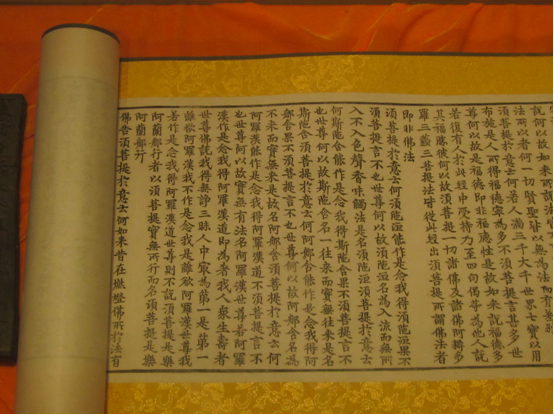 說何以故
法所以者何一切賢聖皆以無為法而有
須菩提於意云何若人滿三千大千世界七寶以用
布施是人所得福德寧為多不須菩提言甚多世
尊何以故是福德即非福德性是故如來說福德多
若復有人於此經中受持乃至四句偈等為他人說
其福勝彼何以故須菩提一切諸佛及諸佛阿耨多
羅三藐三菩提法皆從此經出須菩提所謂佛法者
即非佛法
須菩提於意云何須陀洹能作是念我得須陀洹果不
須菩提言不也世尊何以故須陀洹名為入流而無所
入不入色聲香味觸法是名須陀洹須菩提於意云
何斯陀含能作是念我得斯陀含果不須菩提言不
也世尊何以故斯陀含名一往來而實無往來是名
斯陀含須菩提於意云何阿那含能作是念我得阿
那含果不須菩提言不也世尊何以故阿那含名為
不來而實無來是故名阿那含須菩提於意云何
阿羅漢能作是念我得阿羅漢道不須菩提言不
也世尊何以故實無有法名阿羅漢世尊若阿羅
漢作是念我得阿羅漢道即為著我人眾生壽者
世尊佛說我得無諍三昧人中最為第一是第一
離欲阿羅漢我不作是念我是離欲阿羅漢世尊我
若作是念我得阿羅漢道世尊則不說須菩提是樂
阿蘭那行者以須菩提實無所行而名須菩提是樂
阿蘭那行
佛告須菩提於意云何如來昔在燃燈佛所於法有